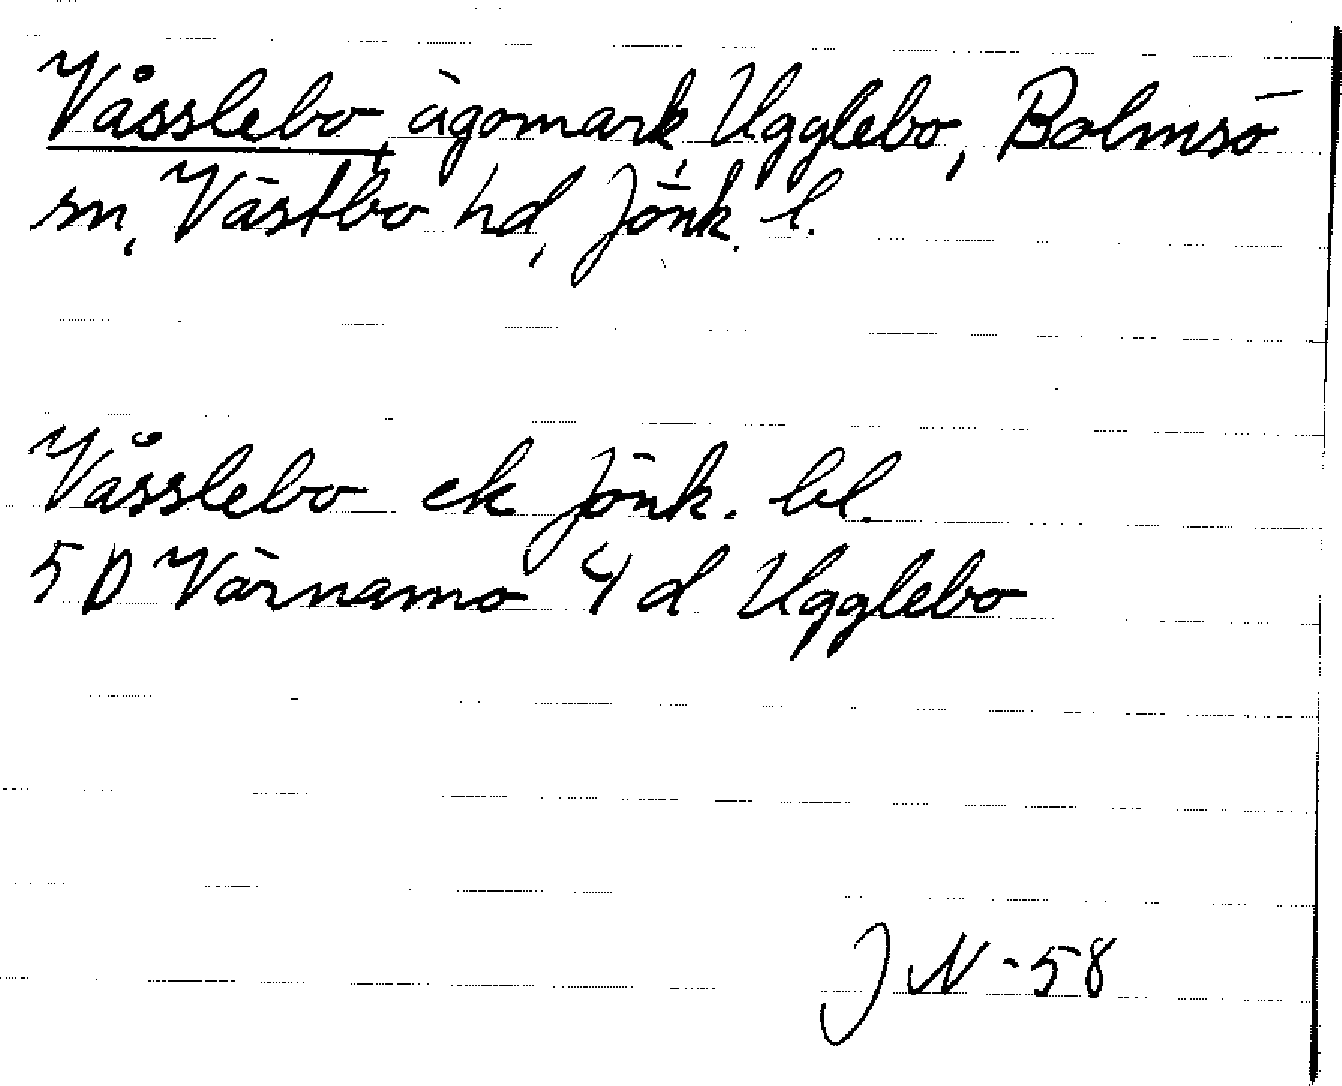 Våsslebo, ägomark, Ugglebo, Bolmsö
sn, Västbo hd, Jönk. l.
Våsslebo ek Jönk. bl.
5 D Värnamo 4 d Ugglebo
J N -58